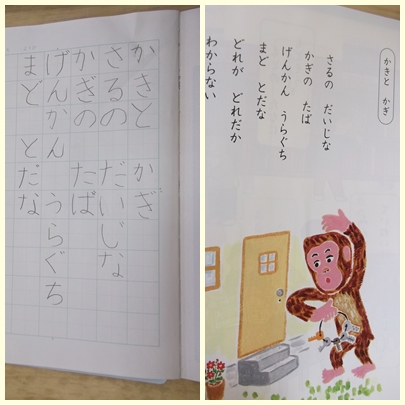 かきと かぎ
さるの だいじな
かぎの たば
げんかん うらぐち
まど とだな
かきと かぎ
さるの だいじな
かぎの たば
げんかん うらぐち
まど とだな
どれが どれだか
わからない